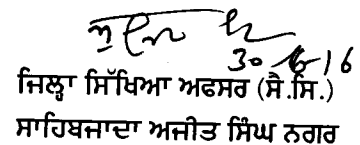 30/6/16
ਜਿਲ੍ਹਾ ਸਿੱਖਿਆ ਅਫਸਰ (ਸੈ.ਸਿ.)
ਸਾਹਿਬਜਾਦਾ ਅਜੀਤ ਸਿੰਘ ਨਗਰ